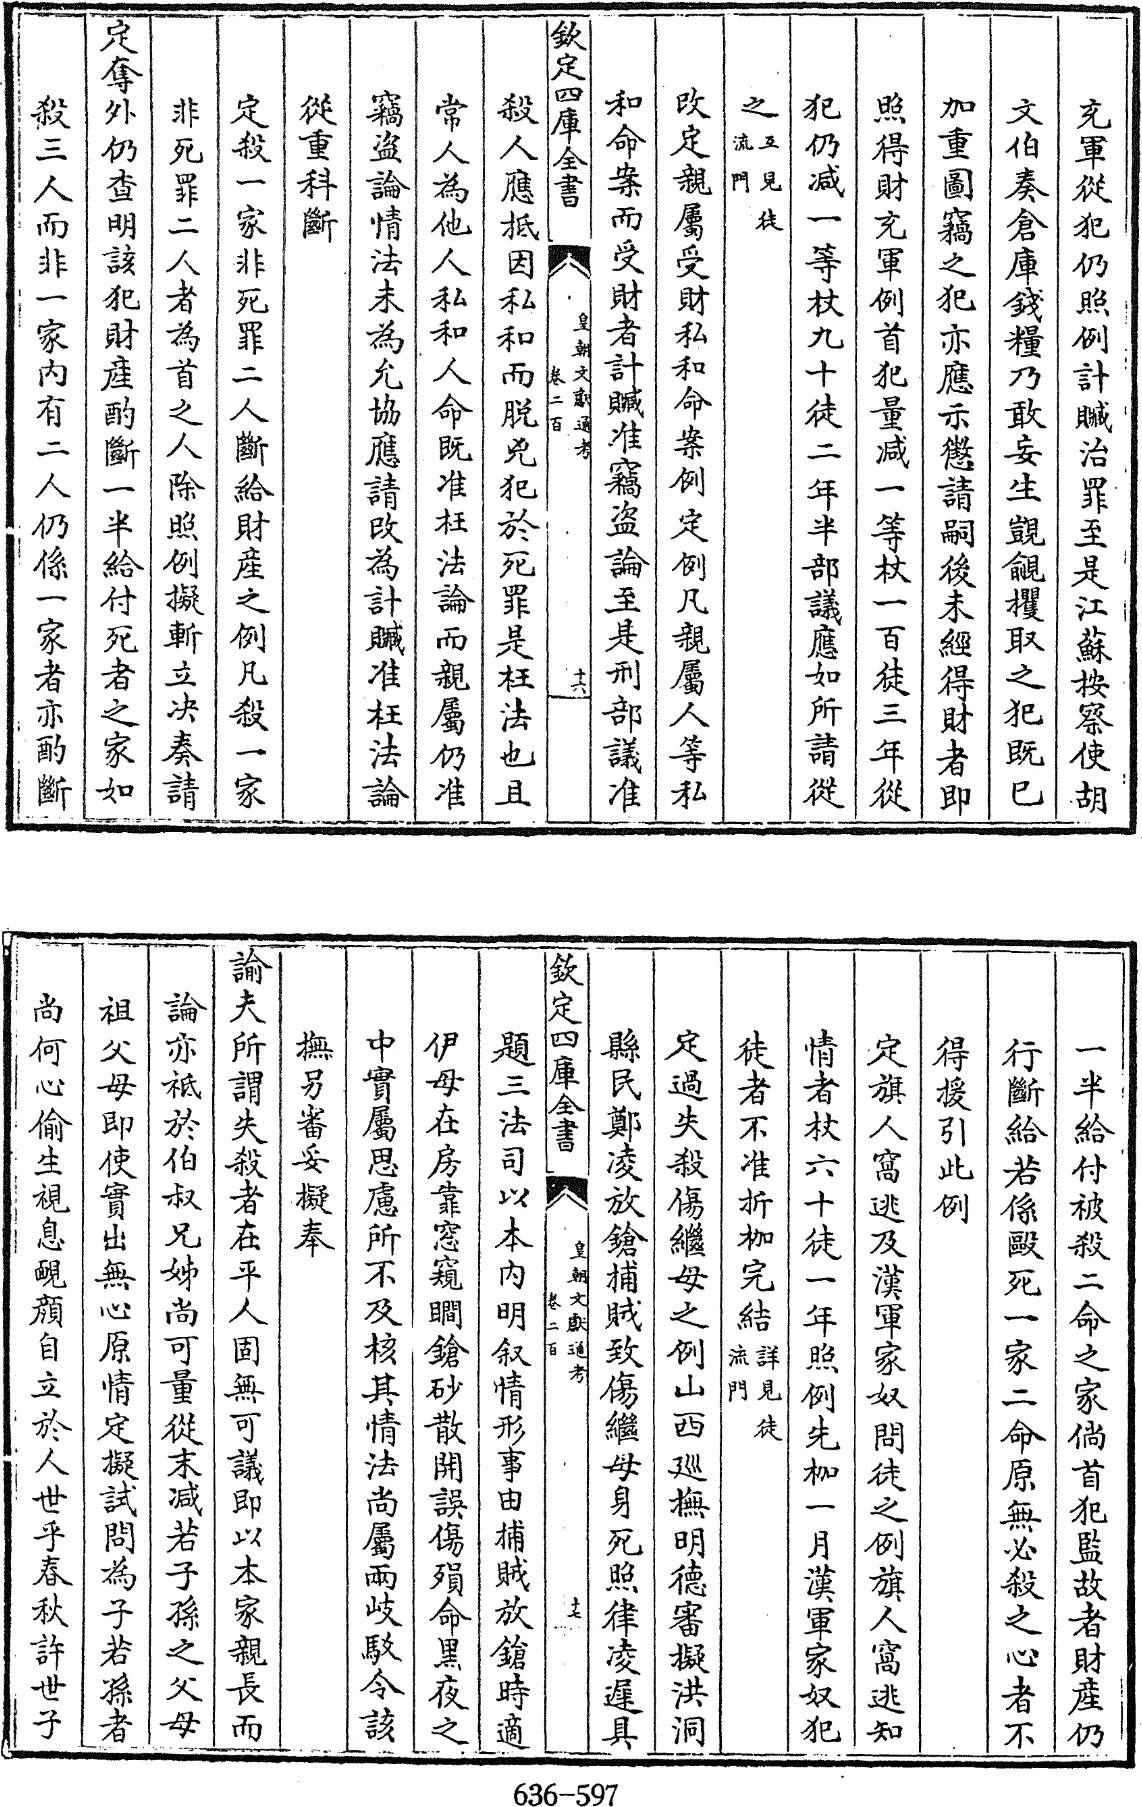 充軍從犯仍照例計贓治罪至是江蘇按察使胡
文伯奏倉庫錢糧乃敢妄生覬覦攫取之犯既已
加重圖竊之犯亦應示懲請嗣後未經得財者即
照得財充軍例首犯量減一等杖一百徒三年從
犯仍減一等杖九十徒二年半部議應如所請從
之互見徒
流門
改定親屬受財私和命案例定例凡親屬人等私
和命案而受財者計贓准竊盜論至是刑部議准
欽定四庫全書
皇朝文獻通考
卷二百
十六
殺人應抵因私和而脱兇犯於死罪是枉法也且
常人為他人私和人命既准枉法論而親屬仍准
竊盜論情法未為允協應請改為計贓准枉法論
從重科斷
定殺一家非死罪二人斷給財產之例凡殺一家
非死罪二人者為首之人除照例擬斬立决奏請
定奪外仍查明該犯財產酌斷一半給付死者之家如
殺三人而非一家內有二人仍係一家者亦酌斷
一半給付被殺二命之家倘首犯監故者財產仍
行斷給若係毆死一家二命原無必殺之心者不
得援引此例
定旗人窩逃及漢軍家奴問徒之例旗人窩逃知
情者杖六十徒一年照例先枷一月漢軍家奴犯
徒者不准折枷完結詳見徒
流門
定過失殺傷繼母之例山西巡撫明德審擬洪洞
縣民鄭凌放鎗捕賊致傷繼母身死照律凌遲具
欽定四庫全書
皇朝文獻通考
卷二百
十七
題三法司以本內明叙情形事由捕賊放鎗時適
伊母在房靠窓窺瞷鎗砂散開誤傷殞命黑夜之
中實屬思慮所不及核其情法尚屬兩岐駁令該
撫另審妥擬奉
諭夫所謂失殺者在平人固無可議即以本家親長而
論亦祗於伯叔兄姊尚可量從末減若子孫之父母
祖父母即使實出無心原情定擬試問為子若孫者
尚何心偷生視息靦顔自立於人世乎春秋許世子
636-597